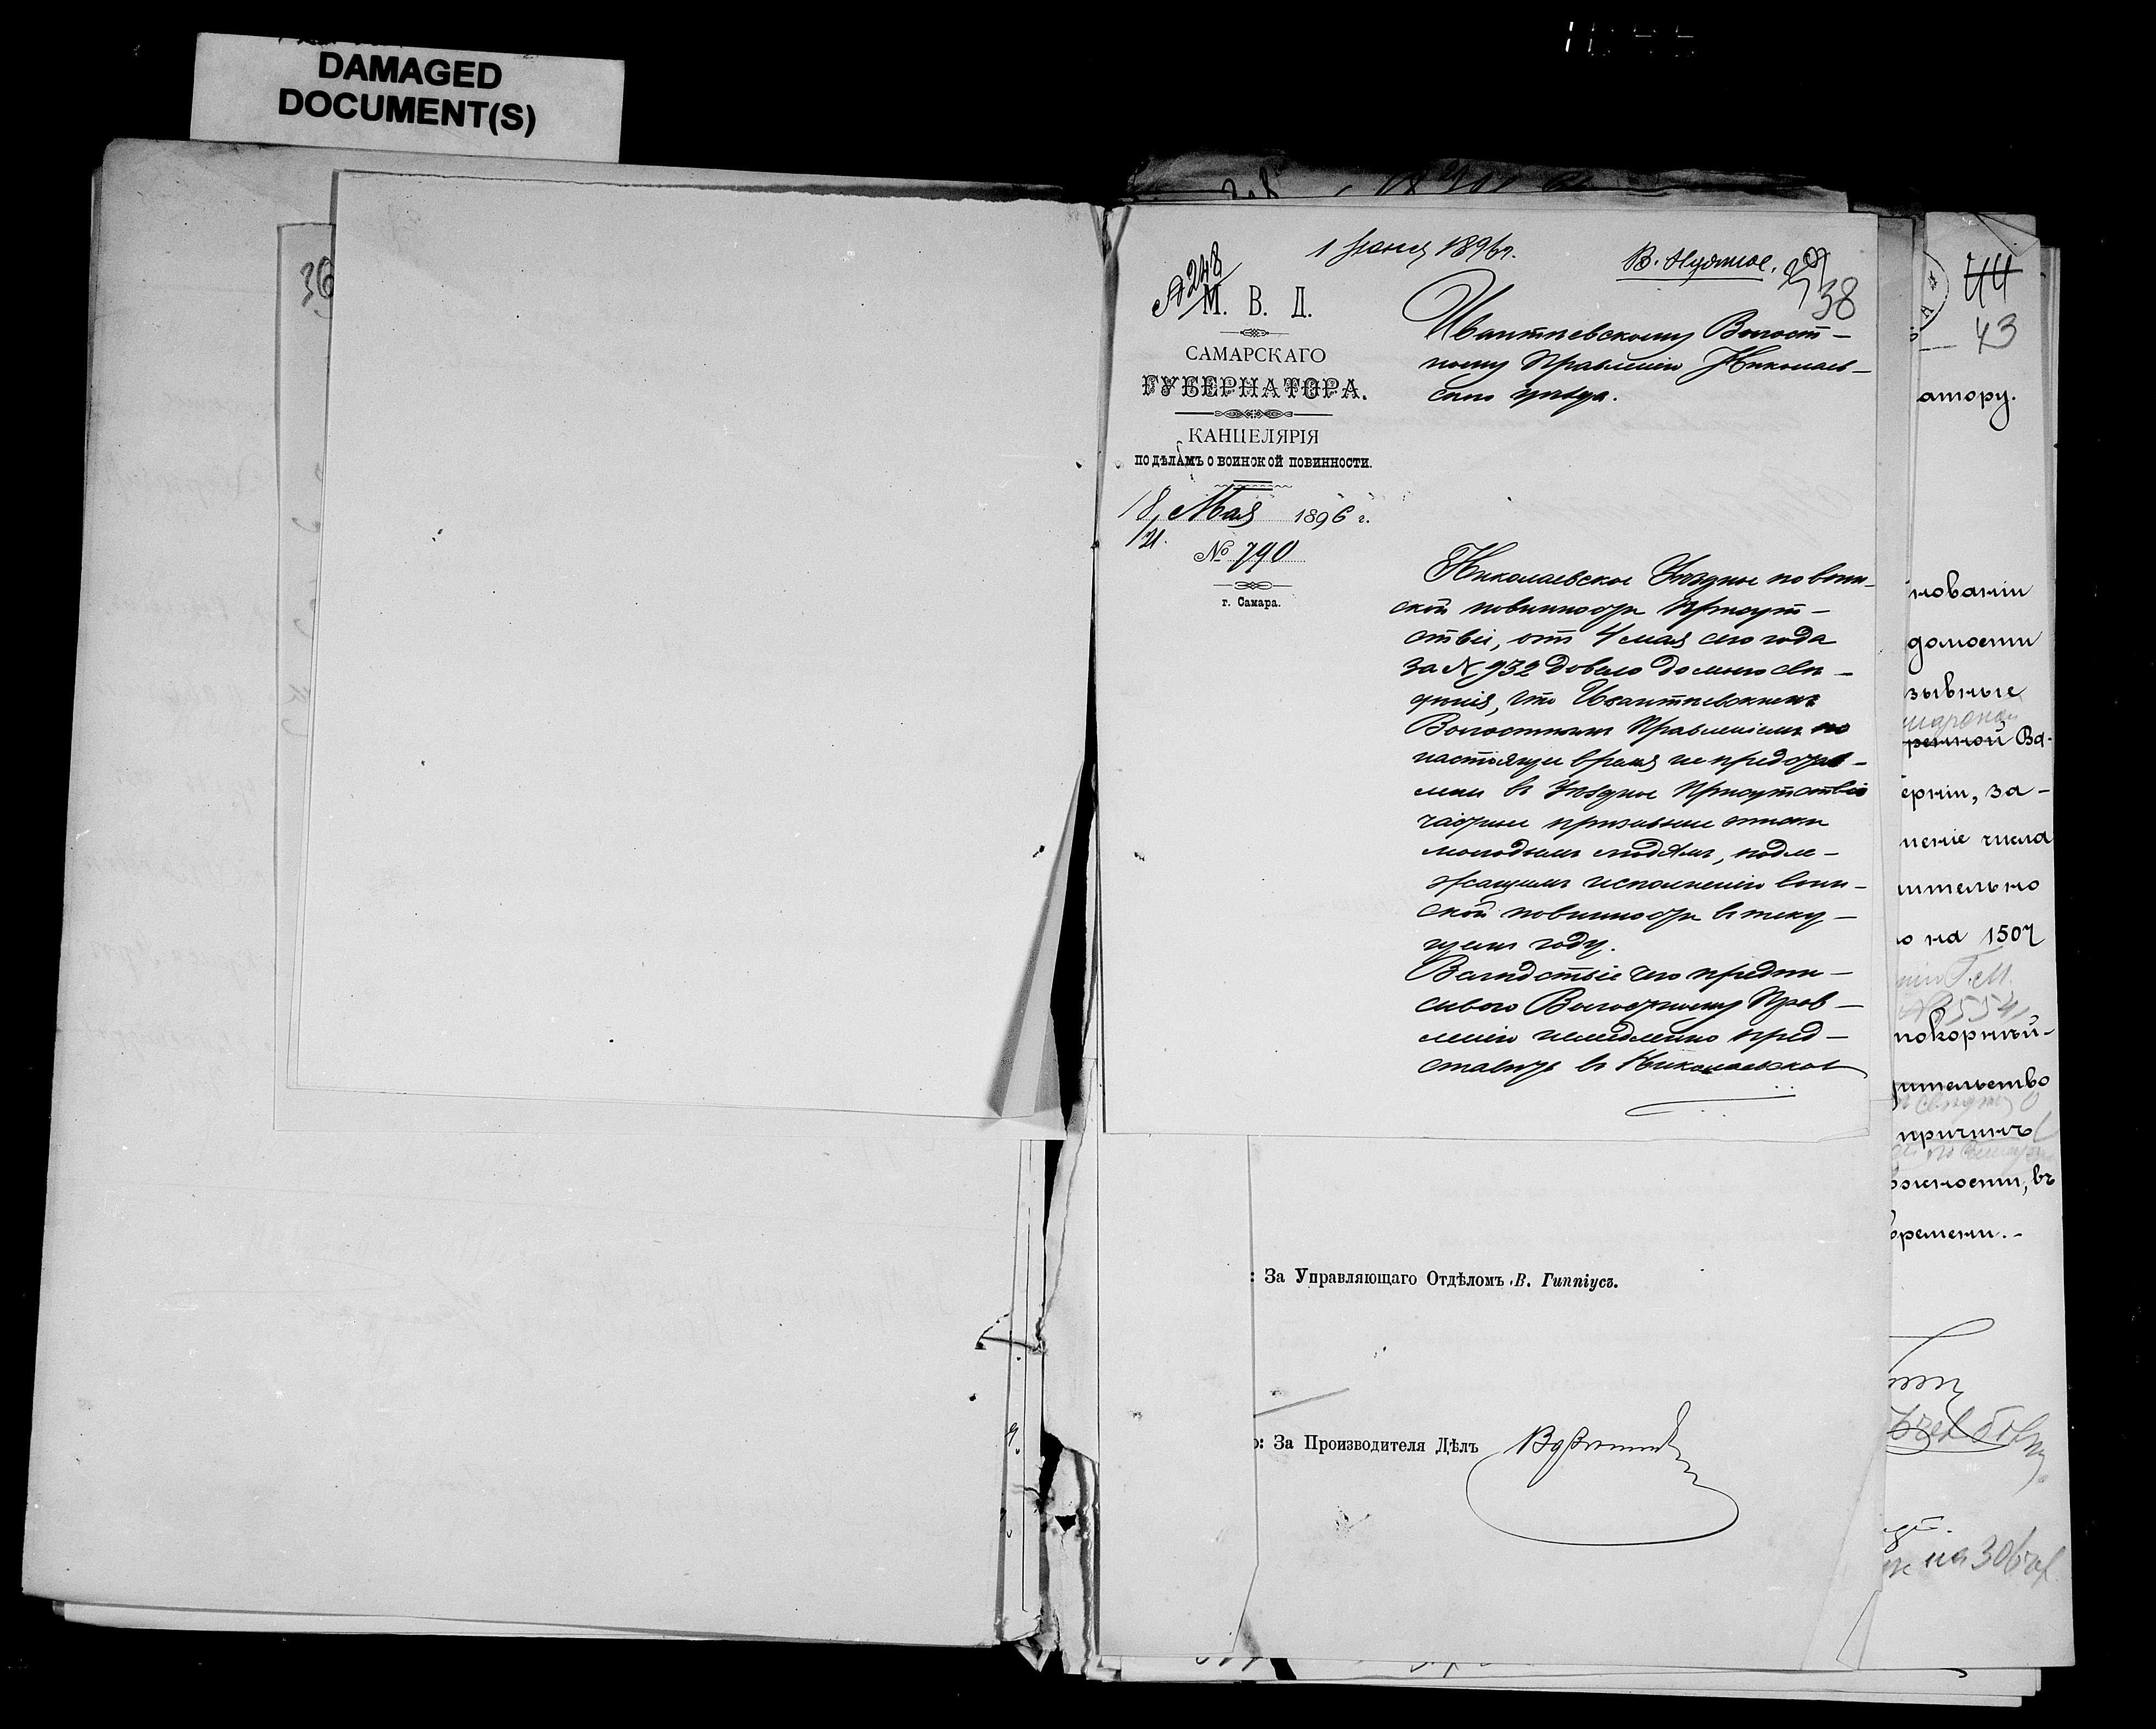 DAMAGED
DOCUMENT(S)
36
1 Іюня 1896 г.
В. Нужное.
38
№ 248
М. В. Д.
САМАРСКАГО
ГУБЕРНАТОРА.
КАНЦЕЛЯРІЯ
ПО ДѢЛАМЪ О ВОИНСКОЙ ПОВИННОСТИ.
18/21 Мая 1896 г.
№ 790
г. Самара.
Ивантѣевскому Волост-
ному Правленію Николаев-
скаго уѣзда.
Николаевское Уѣздное по воин-
ской повинности Присут-
ствіе, отъ 4 мая сего года
за № 932 довело до моего свѣ-
дѣнія, что Ивантѣевскимъ
Волостнымъ Правленіемъ по
настоящее время не представ-
лены въ Уѣздное Присутствіе
частные призывные списки
молодымъ людямъ, подле-
жащимъ исполненію воин-
ской повинности въ теку-
щемъ году.
Вслѣдствіе чего предпи-
сываю Волостному Прав-
ленію немедленно пред-
ставить въ Николаевское
: За Управляющаго Отдѣломъ В. Гиппіусъ.
о: За Производителя Дѣлъ
44
43
атору.
нованіи
домости
зывные
ренной Ва-
ерніи, за-
неніе числа
ительно
о на 1507
№ 554
покорнѣй-
ительство
причинъ
ожности, въ
времени.-
на 306 об.